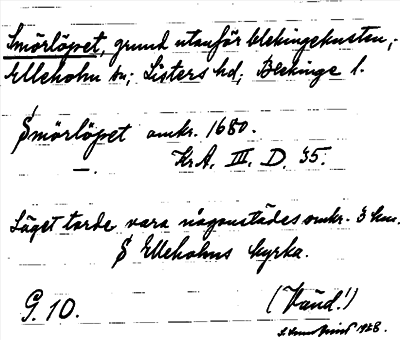 Smörlöpet, grund utanför blekingekusten,
Elleholm sn; Listers hd; Blekinge l.
Smörlöpet omkr. 1680.
Kr.A. III. D. 35.
Läget torde vara någonstädes omkr. 3 km.
S Elleholms kyrka.
G. 10. (Vänd!)
1928.